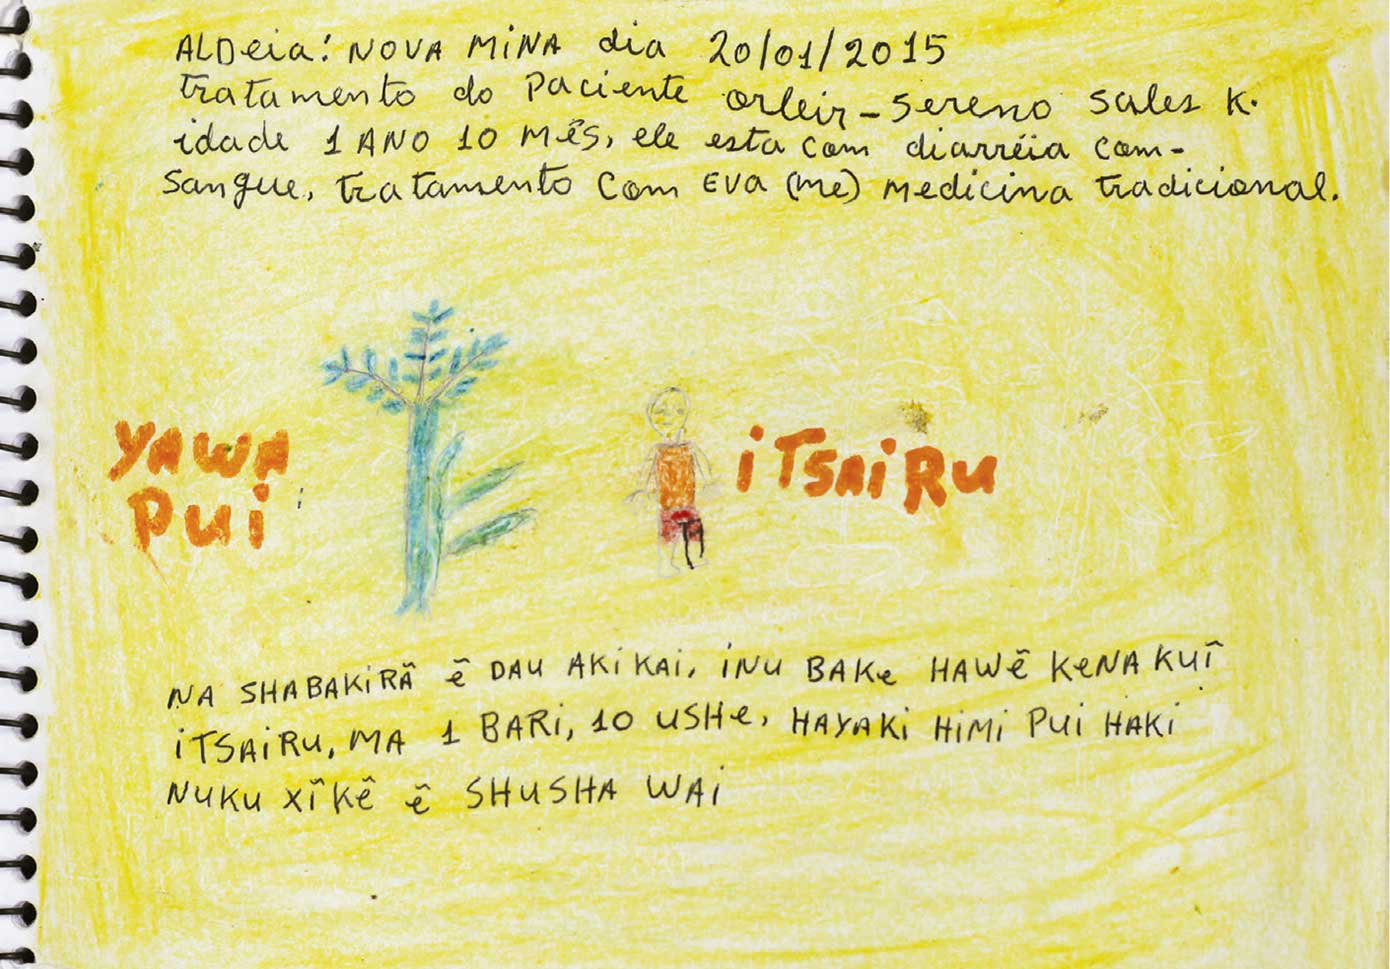 ALDeia: NOVA MiNA dia 20/01/2015
tratamento do Paciente orleir-Sereno Sales K.
idade 1 ANO 10 Mês, ele esta com diarréia com-
Sangue, tratamento Com EVA (me) medicina tradicional.
YAWA
Pui
iTSAiRu
NA SHABAKiRÃ ẽ DAU AKi KAi, iNU BAKe HAWẼ KeNA KUĨ
iTSAiRU, MA 1 BARi, 10 USHe, HAYAKi HiMi PUi HAKi
NUKU XĨKẼ ẽ SHUSHA WAi